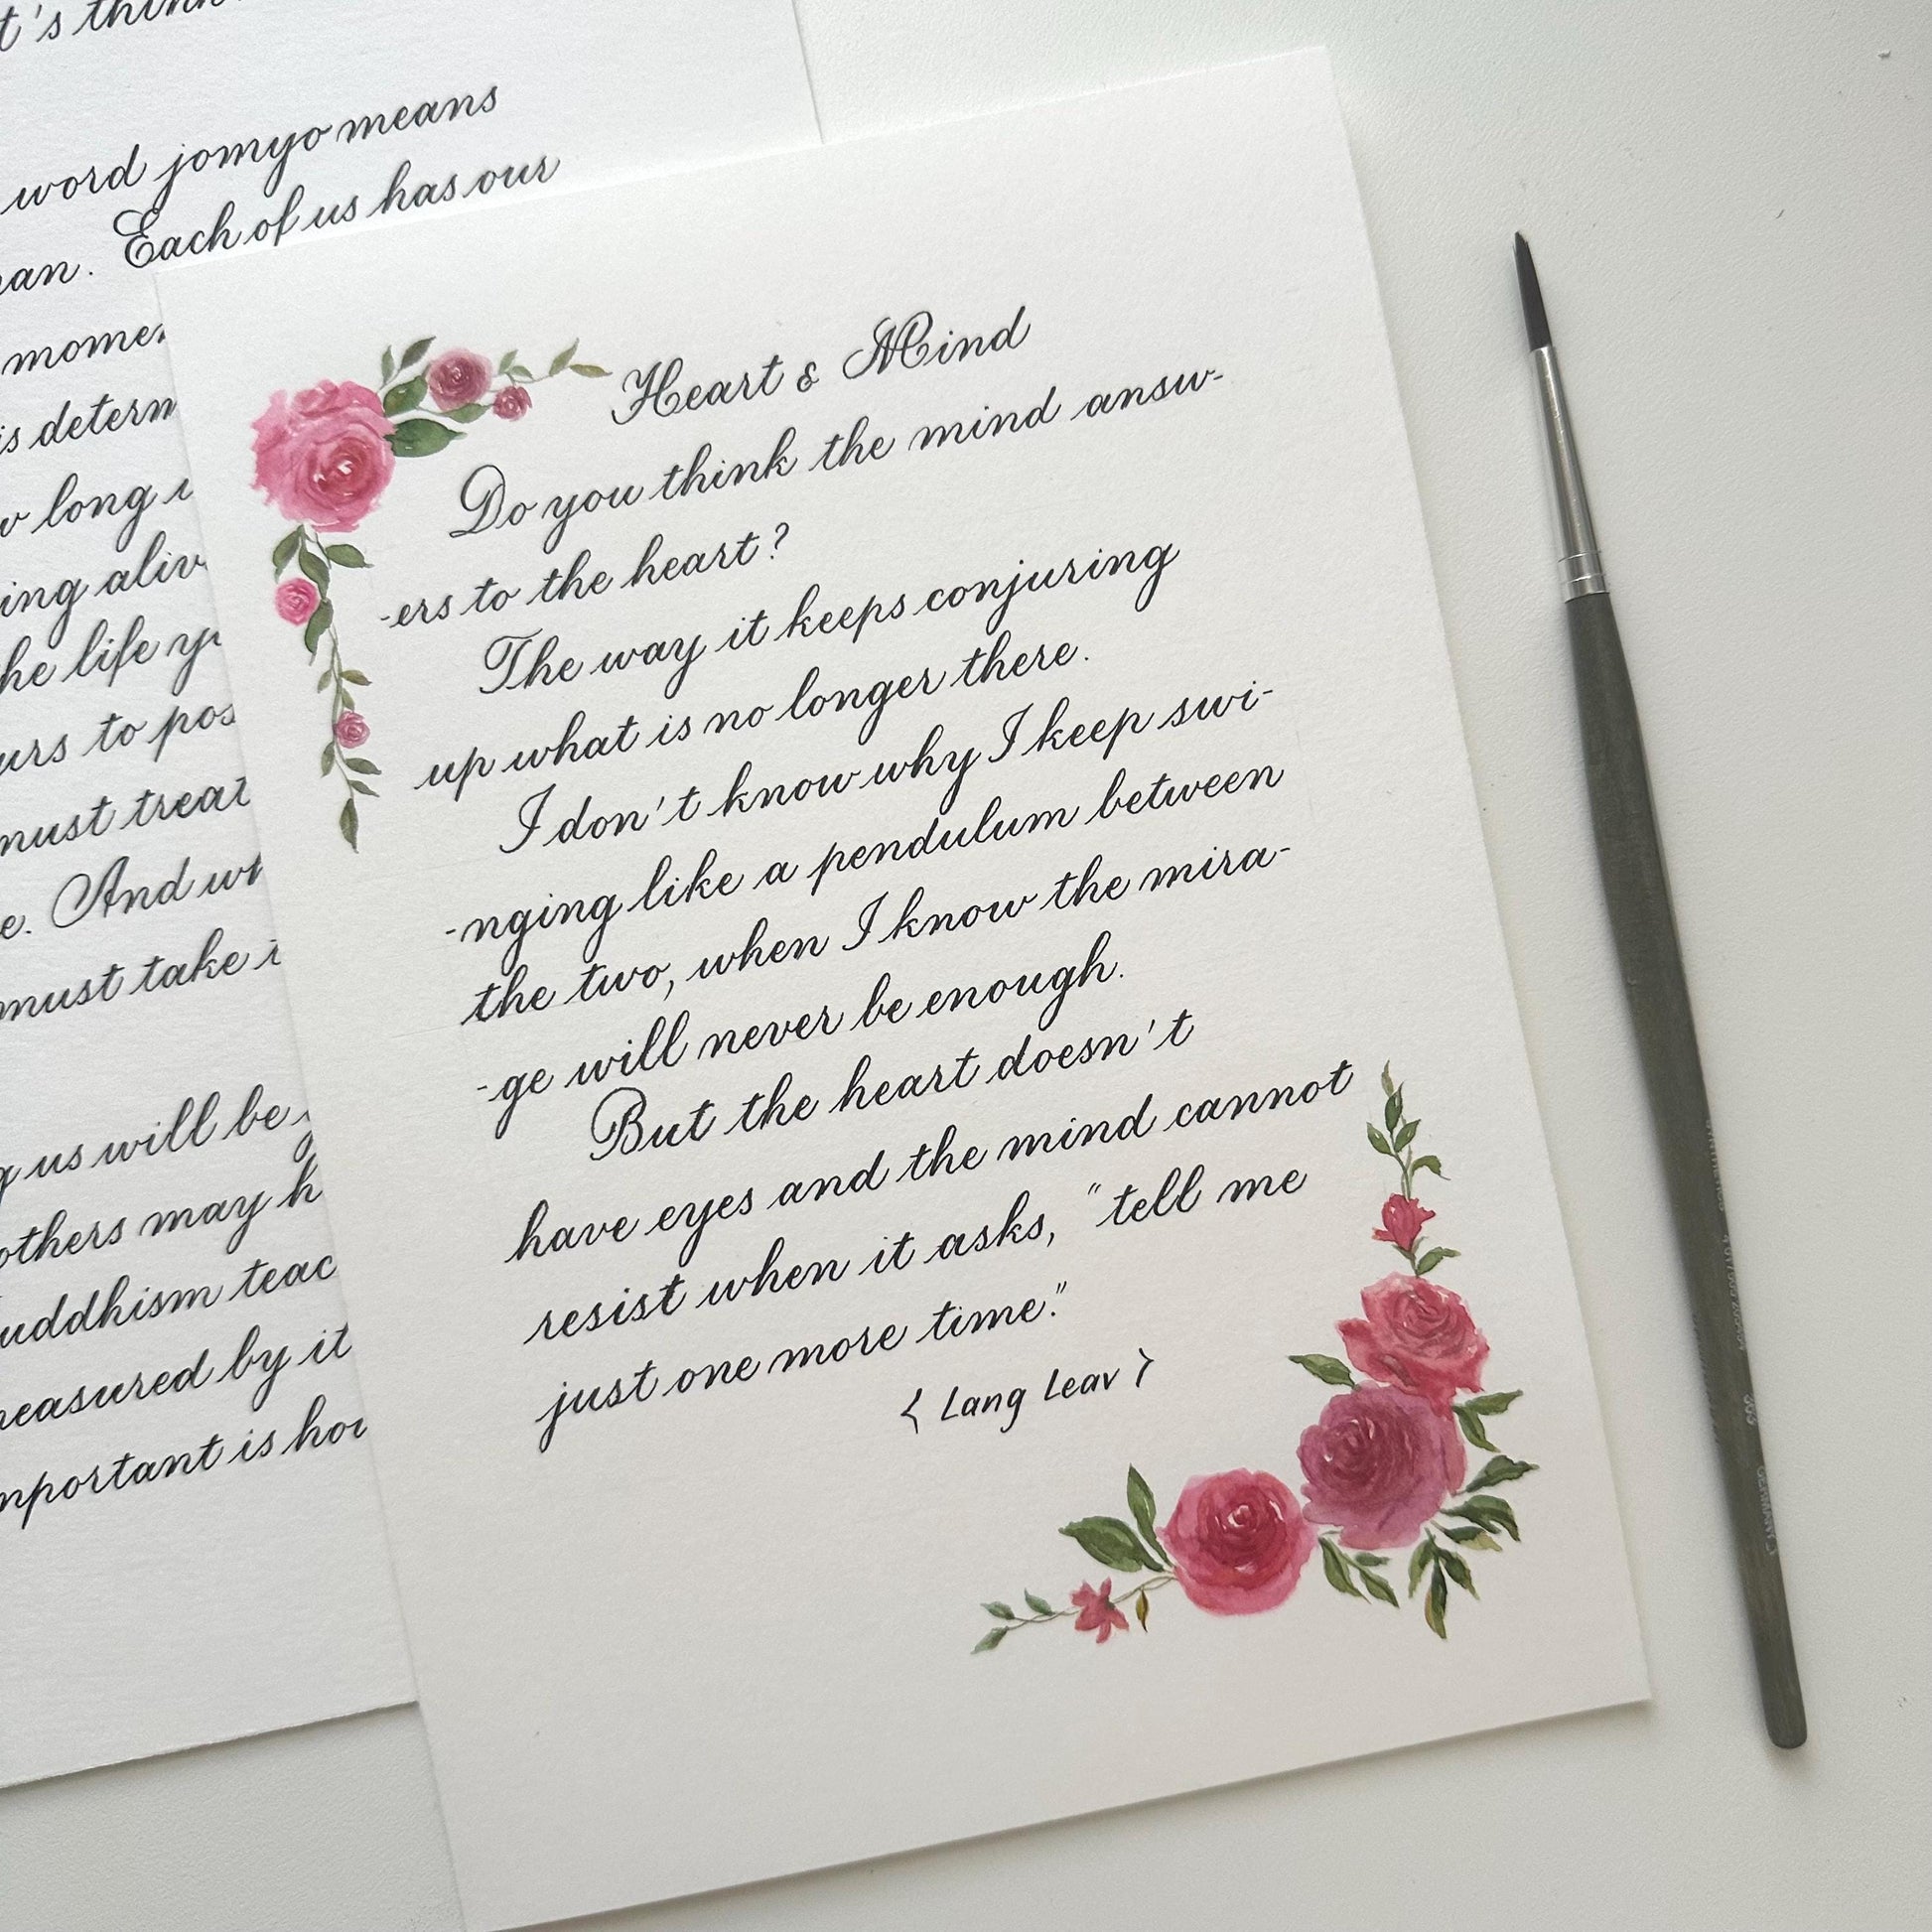 t's think
word jomyo means
Each of us has our
is
long
ing
he life
urs to
must treat
e. And
must take
us will be
others may
teac
measured by it
is
Heart & Mind
Do you think the mind answ-
-ers to the heart?
The way it keeps conjuring
up what is no longer there.
I don't know why I keep swi-
-nging like a pendulum between
the two, when I know the mira-
-ge will never be enough.
But the heart doesn't
have eyes and the mind cannot
resist when it asks, "tell me
just one more time."
< Lang Leav >